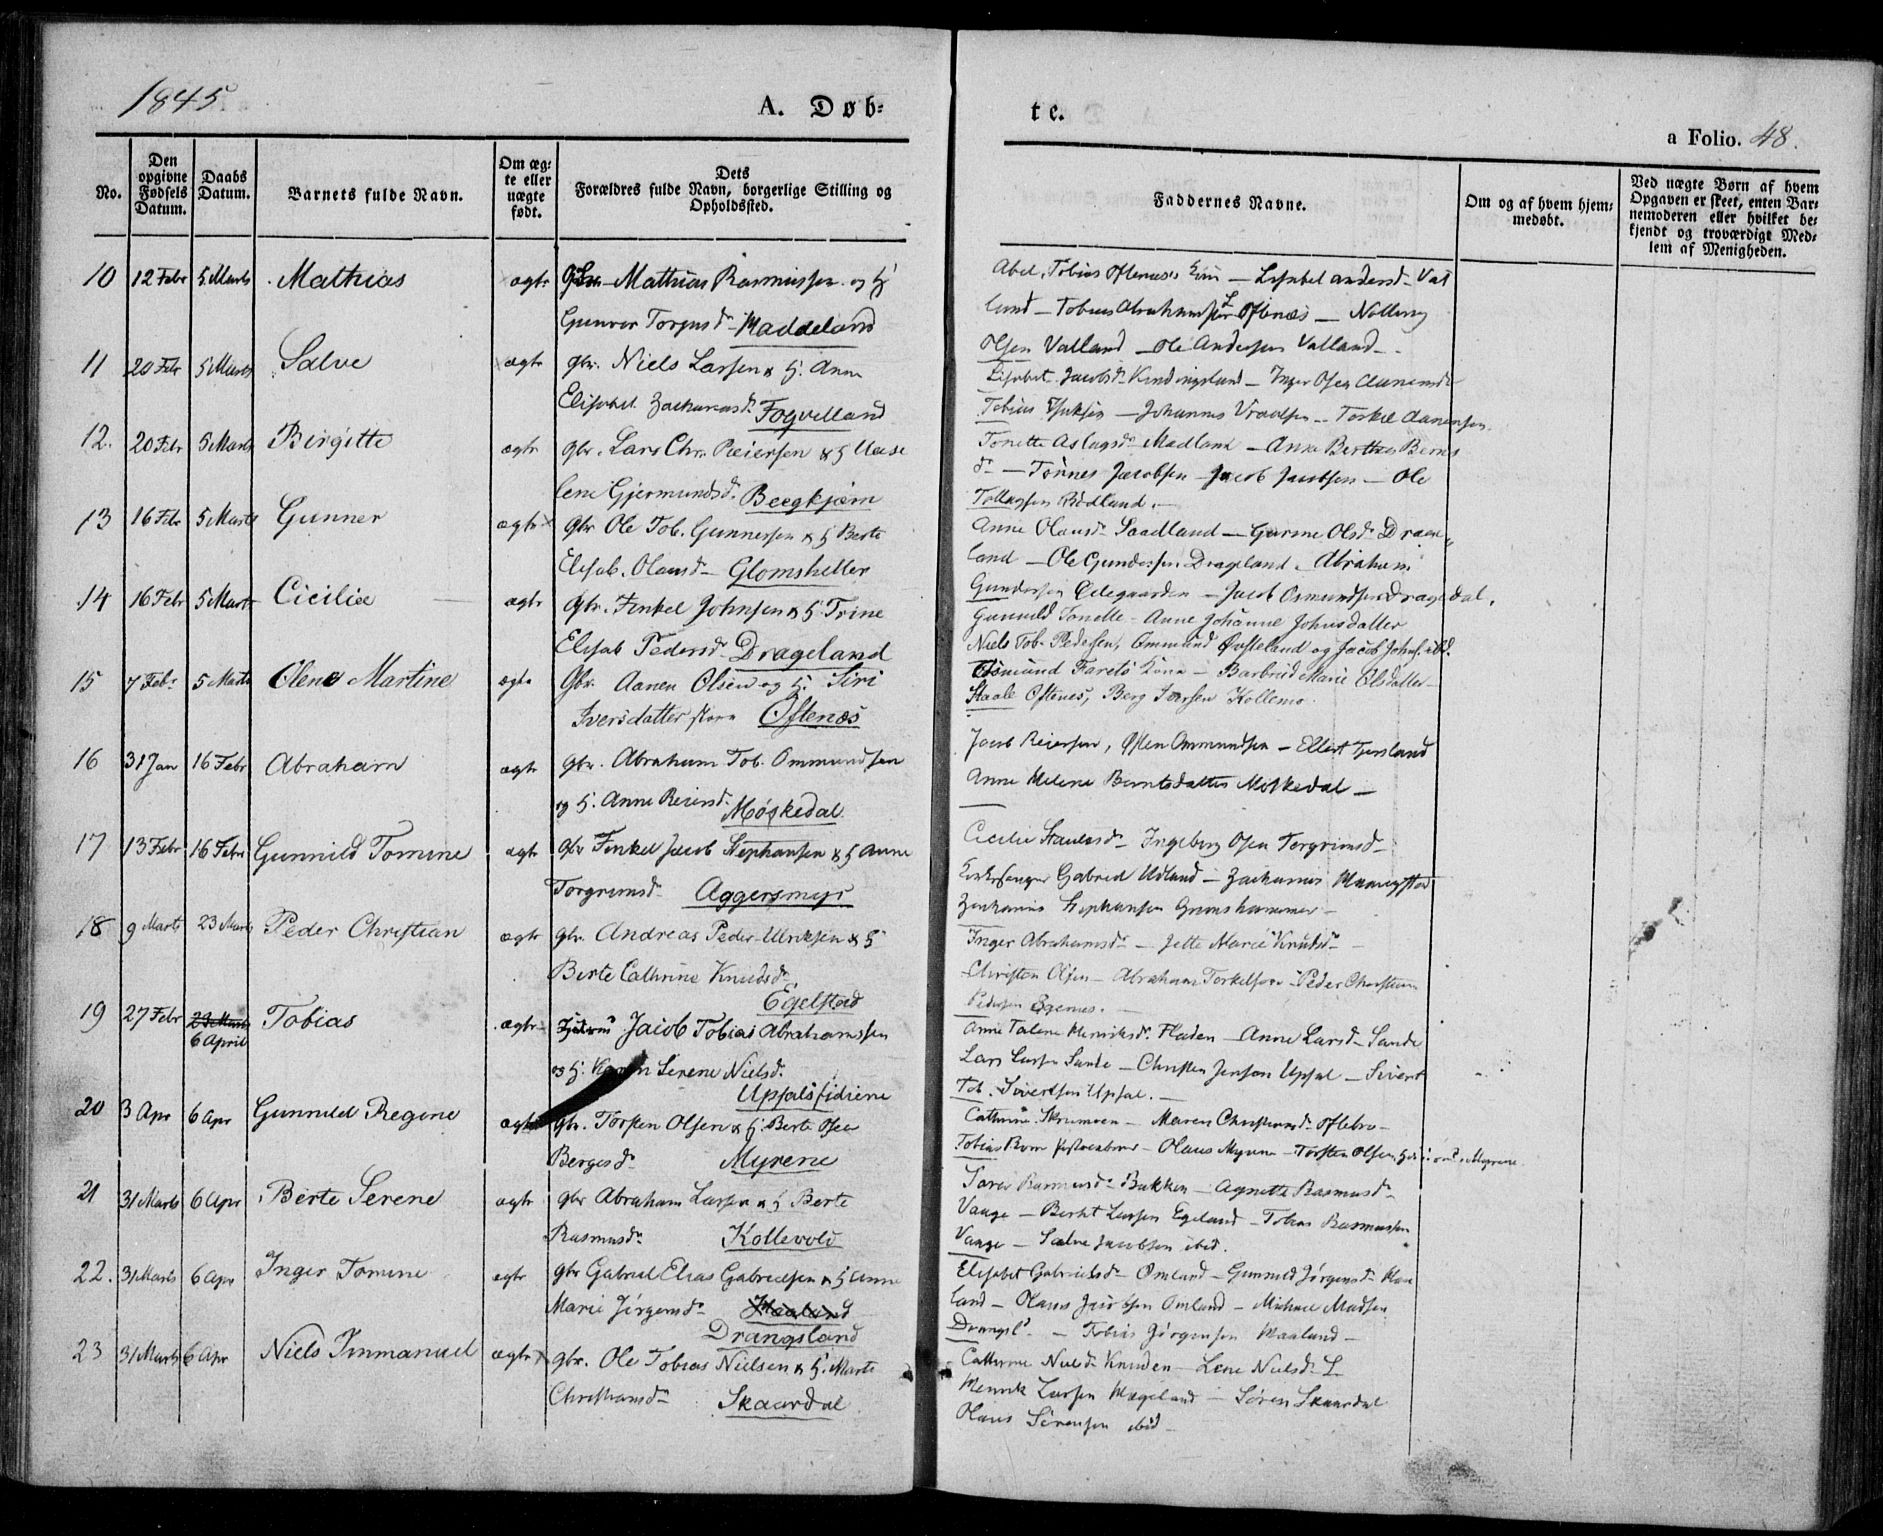 1845.
A. Døb-
te.
a Folio. 48.
No.
Den opgivne Fødsels Datum.
Daabs Datum.
Barnets fulde Navn.
Om ægte eller uægte født.
Dets Forældres fulde Navn, borgerlige Stilling og Opholdssted.
Faddernes Navne.
Om og af hvem hjemmedøbt.
Ved uægte Børn af hvem Opgaven er skeet, enten Barnemoderen eller hvilket bekjendt og troværdigt Medlem af Menigheden.
10 12 Febr 5 Marts Mathias ægte Gbr. Mathias Rasmussen og H
Gunvor Torjusd. Maddeland
Abel, Tobias Oftenæs's - Lisabet Andersd. Val
land - Tobias Abrahamsen Oftenæs -
Olsen Valland - Ole Andersen Valland -
11 20 Febr 5 Marts Salve ægte gbr. Niels Larsen & H. Anne
Elisabet Zachariasd. Fogvelland
Lisabet Jacobsd. - Inger Osea Aanensd
Tobias - Johannes - Torkel Aanensen.
12. 20 Febr 5 Marts Birgitte ægte gbr. Lars Chr. Reiersen & H Aase
lene Gjermundsd. Beegkjærn
Tonette Aslagsd. Madland - Anne Berthea Bernt
d. - Tönnes Jacobsen - Jacob Jacobsen - Ole
Tollagsen Rödland. -
13 16 Febr 5 Marts Gunner ægte gbr Ole Tob. Gunnersen & H Berte
Elisab. Olausd - Glomsheller
Anne Olausd. Saadland - Gurine Olsd. Drage
land - Ole Gundersen Drageland. Abraham
Gundersen Ødegaarden - Jacob Osmundsen Dragedal.
14 16 Febr 5 Mart Cicilie ægte Gbr. Tenkel Johnsen & H. Trine
Elisab Pedersd. Drageland
Gunuld Tonette - Anne Johanne Johnsdatter
Niels Tob. Pedersen, Ommund Øvfteland og Jacob Johns. ibd.
15 7 Febr 5 Marts Olene Martine ægte Gbr. Aanen Olsen og H. Siri
Iversdatter store Oftenæs
Osmund Farets Kone - Barbrud Marie Olsdatter -
Staale Oftenes, Berg Iversen Kollemo
16 31 Jan 16 Febr Abraham ægte gbr. Abraham Tob. Ommundsen
og H. Anne Reiersd. Møskedal
Jacob Reiersen, Osten Ommundsen - Ellert Tjersland
Anne Helene Berntsdatter Moskedal -
17 13 Febr 16 Febr Gunnild Tomine ægte gbr Tenkel Jacob Stephansen & H Anne
Torgrimsd. Aggersmyr
Cicilie Staalesd. Ingeborg Osea Torgrimsd -
Kirkesanger Gabriel Udland - Zacharias
Zacharias Stephansen Grønshammer -
18 9 Marts 23 Marts Peder Christian ægte gbr. Andreas Peder Ulriksen & H
Berte Cathrine Knudsd.
Egelstad
Inger Abrahamsd. - Jette Marie Knudsd. -
Christen Olsen - Abraham Torkelsen - Peder Christian
Pedersen Egenes. -
19 27 Febr 23 Marts 6 April Tobias ægte Jacob Tobias Abrahamssen
og H. Karen Serene Nielsd.
Upsalsfidiene
Anne Talene Henriksd. Fladen - Anne Larsd. Sande
Lars Larsen Sande - Christen Jensen Upsal - Sivert
Tob. Sivertsen Upsal. -
20 3 Apr 6 Apr Gunnild Regine ægte gbr. Torsten Olsen & H. Berte Osea
Bergesd. Myrene
Cathrine Skrumoen - Maren Christiansd. Oftebro -
Tobias - Olaus Myrene - Torsten Olsen
21 31 Marts 6 Apr Berte Serene ægte gbr Abraham Larsen & H Berte
Rasmusd. Kollevold
Taree Rasmusd. Bakken - Agnette Rasmusd.
Vange - Bernt Larsen Egeland - Tobias Rasmussen
Vange - Salve Jacobsen ibid.
22. 31 Marts 6 Apr Inger Tomine ægte gbr Gabriel Elias Gabrielsen & H Anne
Marie Jörgensd. Haaland
Drangsland
Elisabet Gabrielsd. Omland - Gunnuld Jörgensd. Haa
land - Olaus Jacobsen Omland - Michael Madsen
Drangsl. - Tobias Jörgensen Haaland -
23 31 Marts 6 Apr Niels Immanuel ægte gbr. Ole Tobias Nielsen & H. Marte
Christiansd. Skaardal
Cathrine Nielsd. Knuden - Lene Nielsd.
Henrik Larsen Hægeland - Søren Skaardal
Olaus Sørensen ibid -